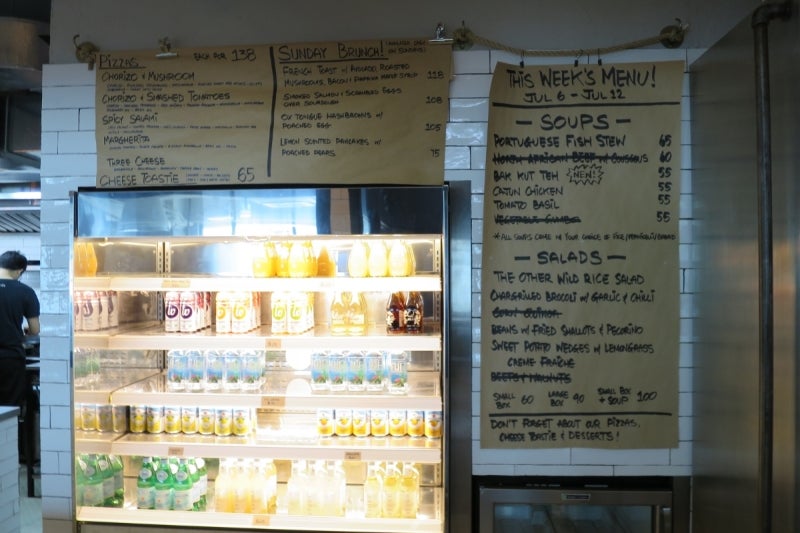 PIZZAS EACH FOR 138
CHORIZO & MUSHROOM
CHORIZO & SMASHED TOMATOES
SPICY SALAMI
MARGHERITA
THREE CHEESE
CHEESE TOASTIE 65
SUNDAY BRUNCH!
FRENCH TOAST W/ AVOCADO, ROASTED
MUSHROOMS, BACON & PAPRIKA MAPLE SYRUP 118
SMOKED SALMON & SCRAMBLED EGGS
OVER SOURDOUGH 108
OX TONGUE HASHBROWNS W/
POACHED EGG 105
LEMON SCENTED PANCAKES W/
POACHED PEARS 75
THIS WEEK'S MENU!
JUL 6 - JUL 12
- SOUPS -
PORTUGUESE FISH STEW 65
NORTH AFRICAN BEEF W/ COUSCOUS 60
BAK KUT TEH NEW! 55
CAJUN CHICKEN 55
TOMATO BASIL 55
VEGETABLE GUMBO 55
* ALL SOUPS COME IN YOUR CHOICE OF RICE/
- SALADS -
THE OTHER WILD RICE SALAD
CHARGRILLED BROCOLI W/ GARLIC & CHILLI
CORN QUINOA
BEANS W/ FRIED SHALLOTS & PECORINO
SWEET POTATO WEDGES W/ LEMONGRASS
CREME FRAICHE
BEETS & WALNUTS
SMALL BOX 60 LARGE BOX 90 SMALL BOX + SOUP 100
DON'T FORGET ABOUT OUR PIZZAS,
CHEESE TOASTIE & DESSERTS!